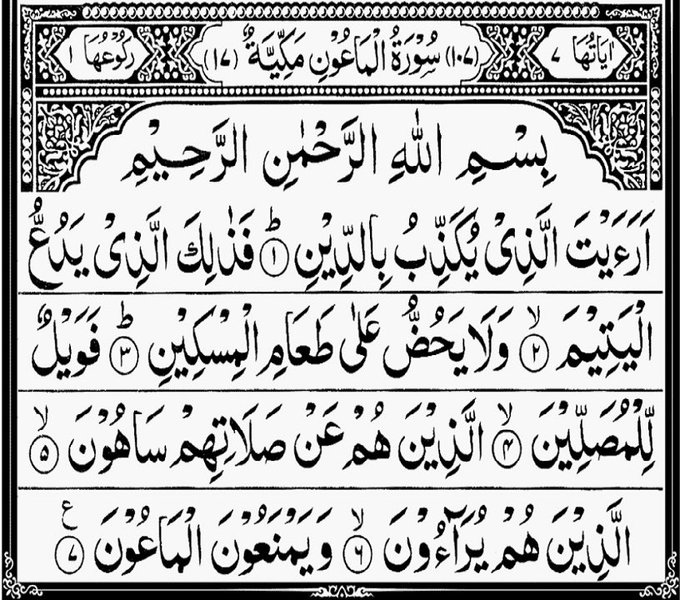 اٰیَاتُهَا ۷ (۱۰۷) سُوْرَةُ الْمَاعُوْنِ مَكِّيَّةٌ (۱۷) رُكُوْعُهَا ۱
بِسْمِ اللّٰهِ الرَّحْمٰنِ الرَّحِيْمِ
اَرَءَيْتَ الَّذِىْ يُكَذِّبُ بِالدِّيْنِ ؕ ۱ فَذٰلِكَ الَّذِىْ يَدُعُّ
الْيَتِيْمَ ۙ ۲ وَلَا يَحُضُّ عَلٰى طَعَامِ الْمِسْكِيْنِ ؕ ۳ فَوَيْلٌ
لِّلْمُصَلِّيْنَ ۙ ۴ الَّذِيْنَ هُمْ عَنْ صَلَاتِهِمْ سَاهُوْنَ ۙ ۵
الَّذِيْنَ هُمْ يُرَآءُوْنَ ۙ ۶ وَيَمْنَعُوْنَ الْمَاعُوْنَ ع ۷